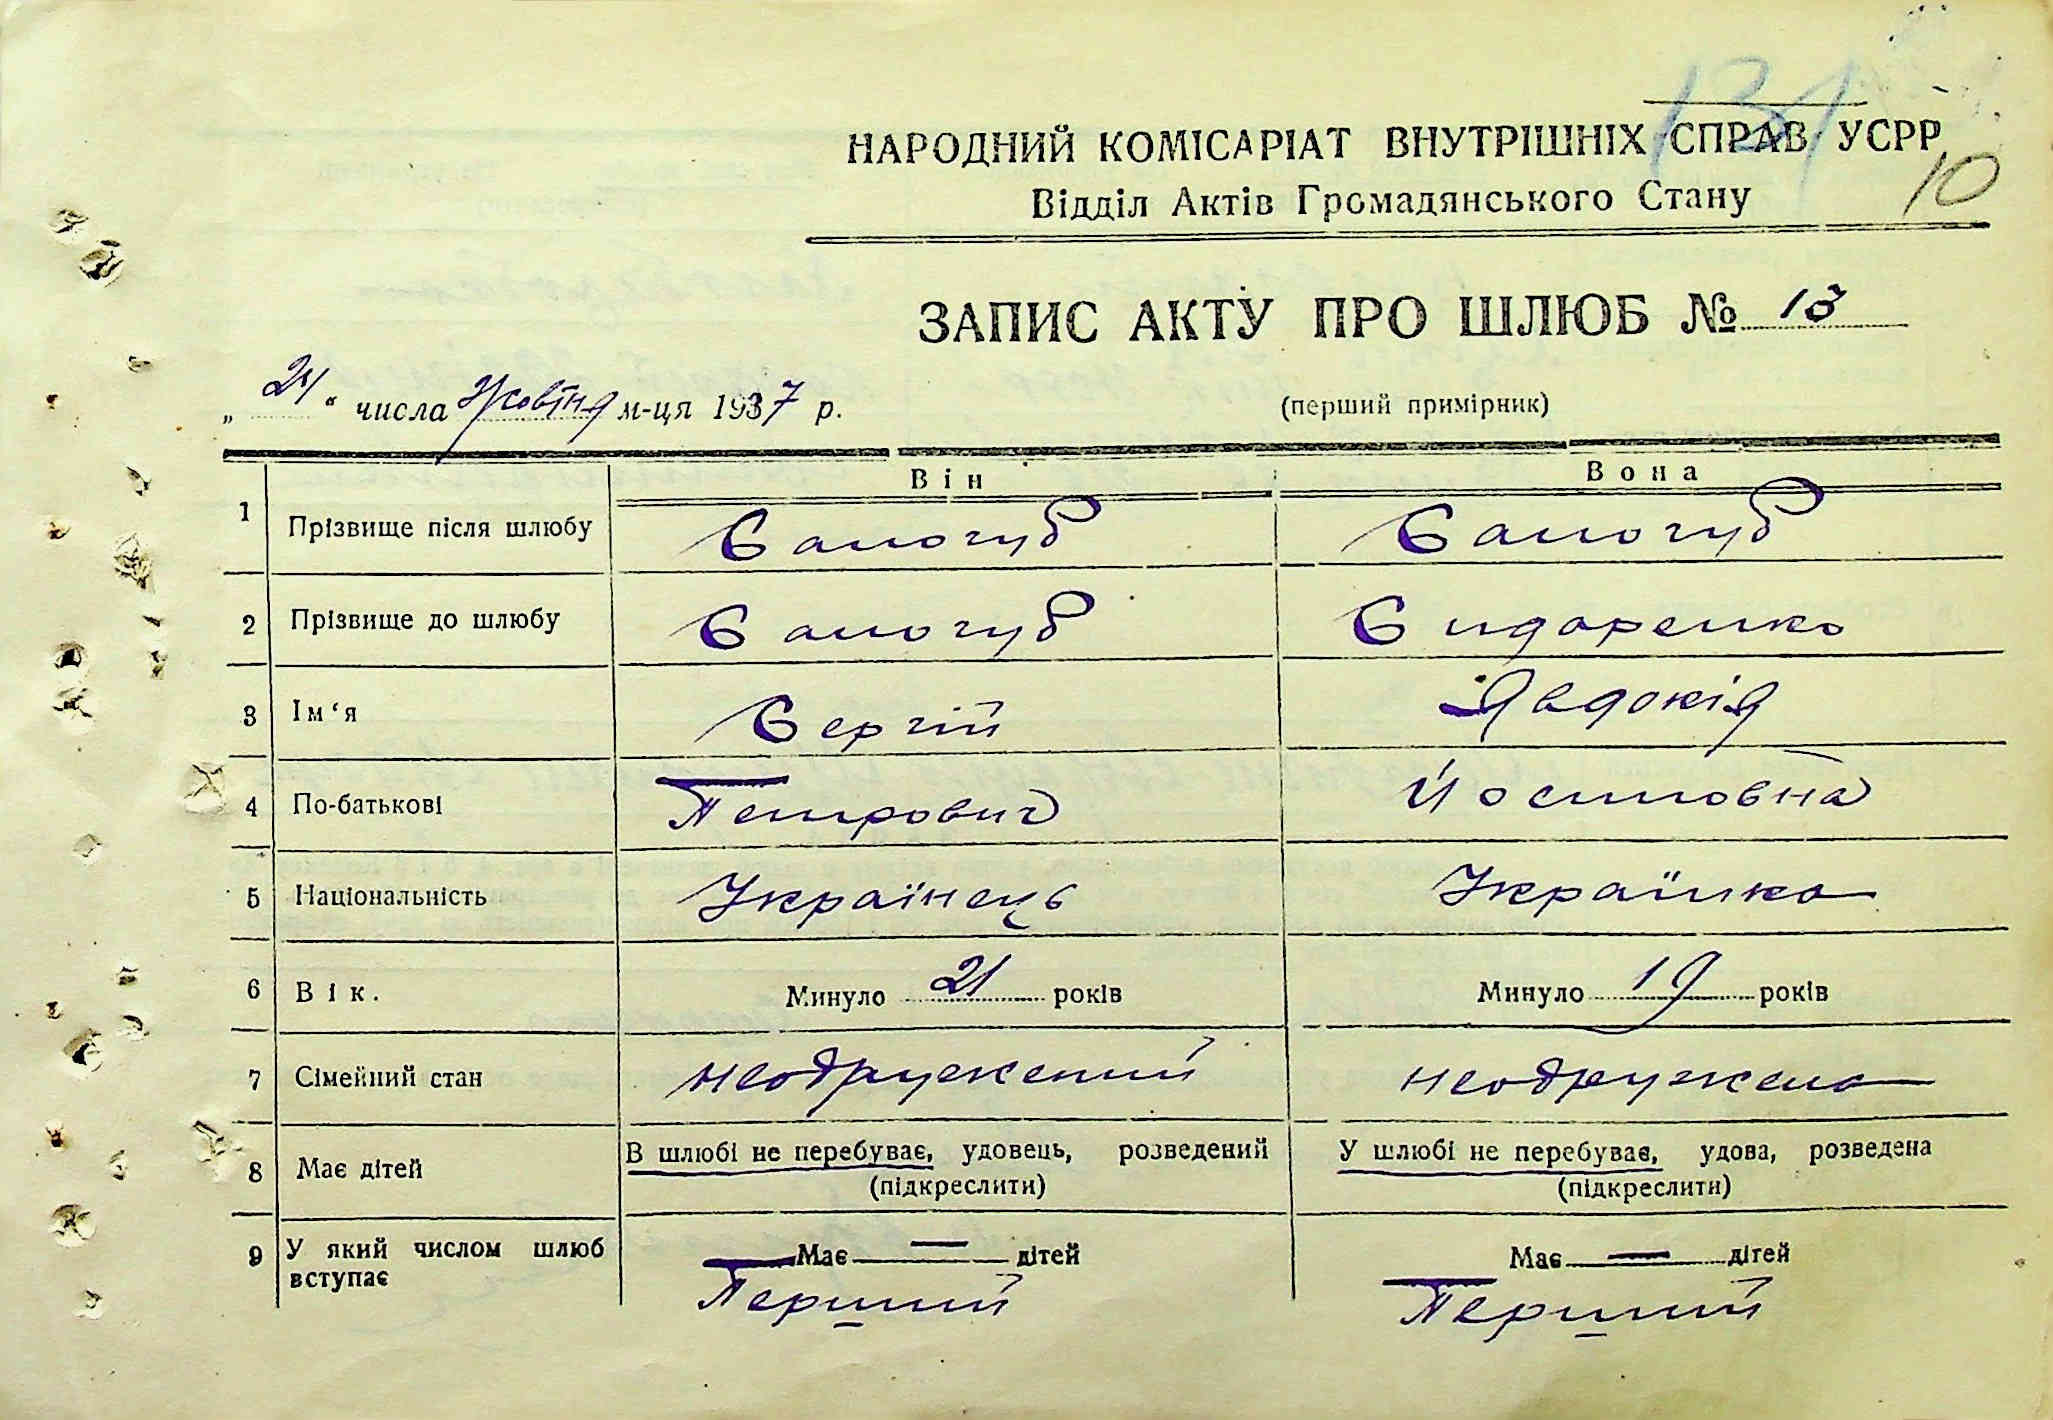 131
НАРОДНИЙ КОМІСАРІАТ ВНУТРІШНІХ СПРАВ УСРР
10
Відділ Актів Громадянського Стану
ЗАПИС АКТУ ПРО ШЛЮБ № 13
„24“ числа Жовтня м-ця 1937 р.
(перший примірник)
Він Вона
1 Прізвище після шлюбу Самогуб Самогуб
2 Прізвище до шлюбу Самогуб Сидоренко
3 Ім‘я Сергій Явдокія
4 По-батькові Петрович Йосиповна
5 Національність Українець Українка
6 Вік. Минуло 21 років Минуло 19 років
7 Сімейний стан неодружений неодружена
8 Має дітей В шлюбі не перебуває, удовець, розведений У шлюбі не перебуває, удова, розведена
(підкреслити) (підкреслити)
9 У який числом шлюб вступає Має — дітей Має — дітей
Перший Перший